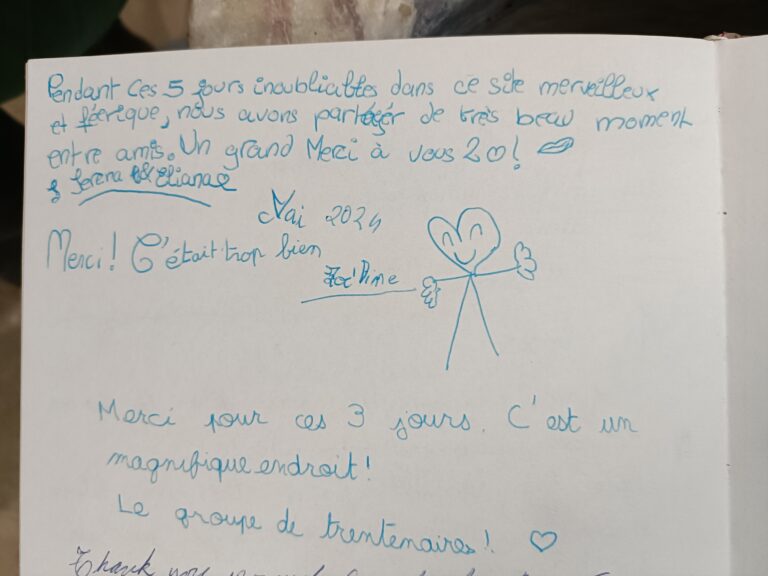 Pendant ces 5 jours inoubliables dans ce site merveilleux
et féerique, nous avons partager de très beau moment
entre amis. Un grand Merci à vous 2 ♡!
Serena & Eliana
Mai 2024
Merci! C'était trop bien
Merci pour ces 3 jours. C'est un
magnifique endroit!
Le groupe de trentenaires! ♡
Thank you